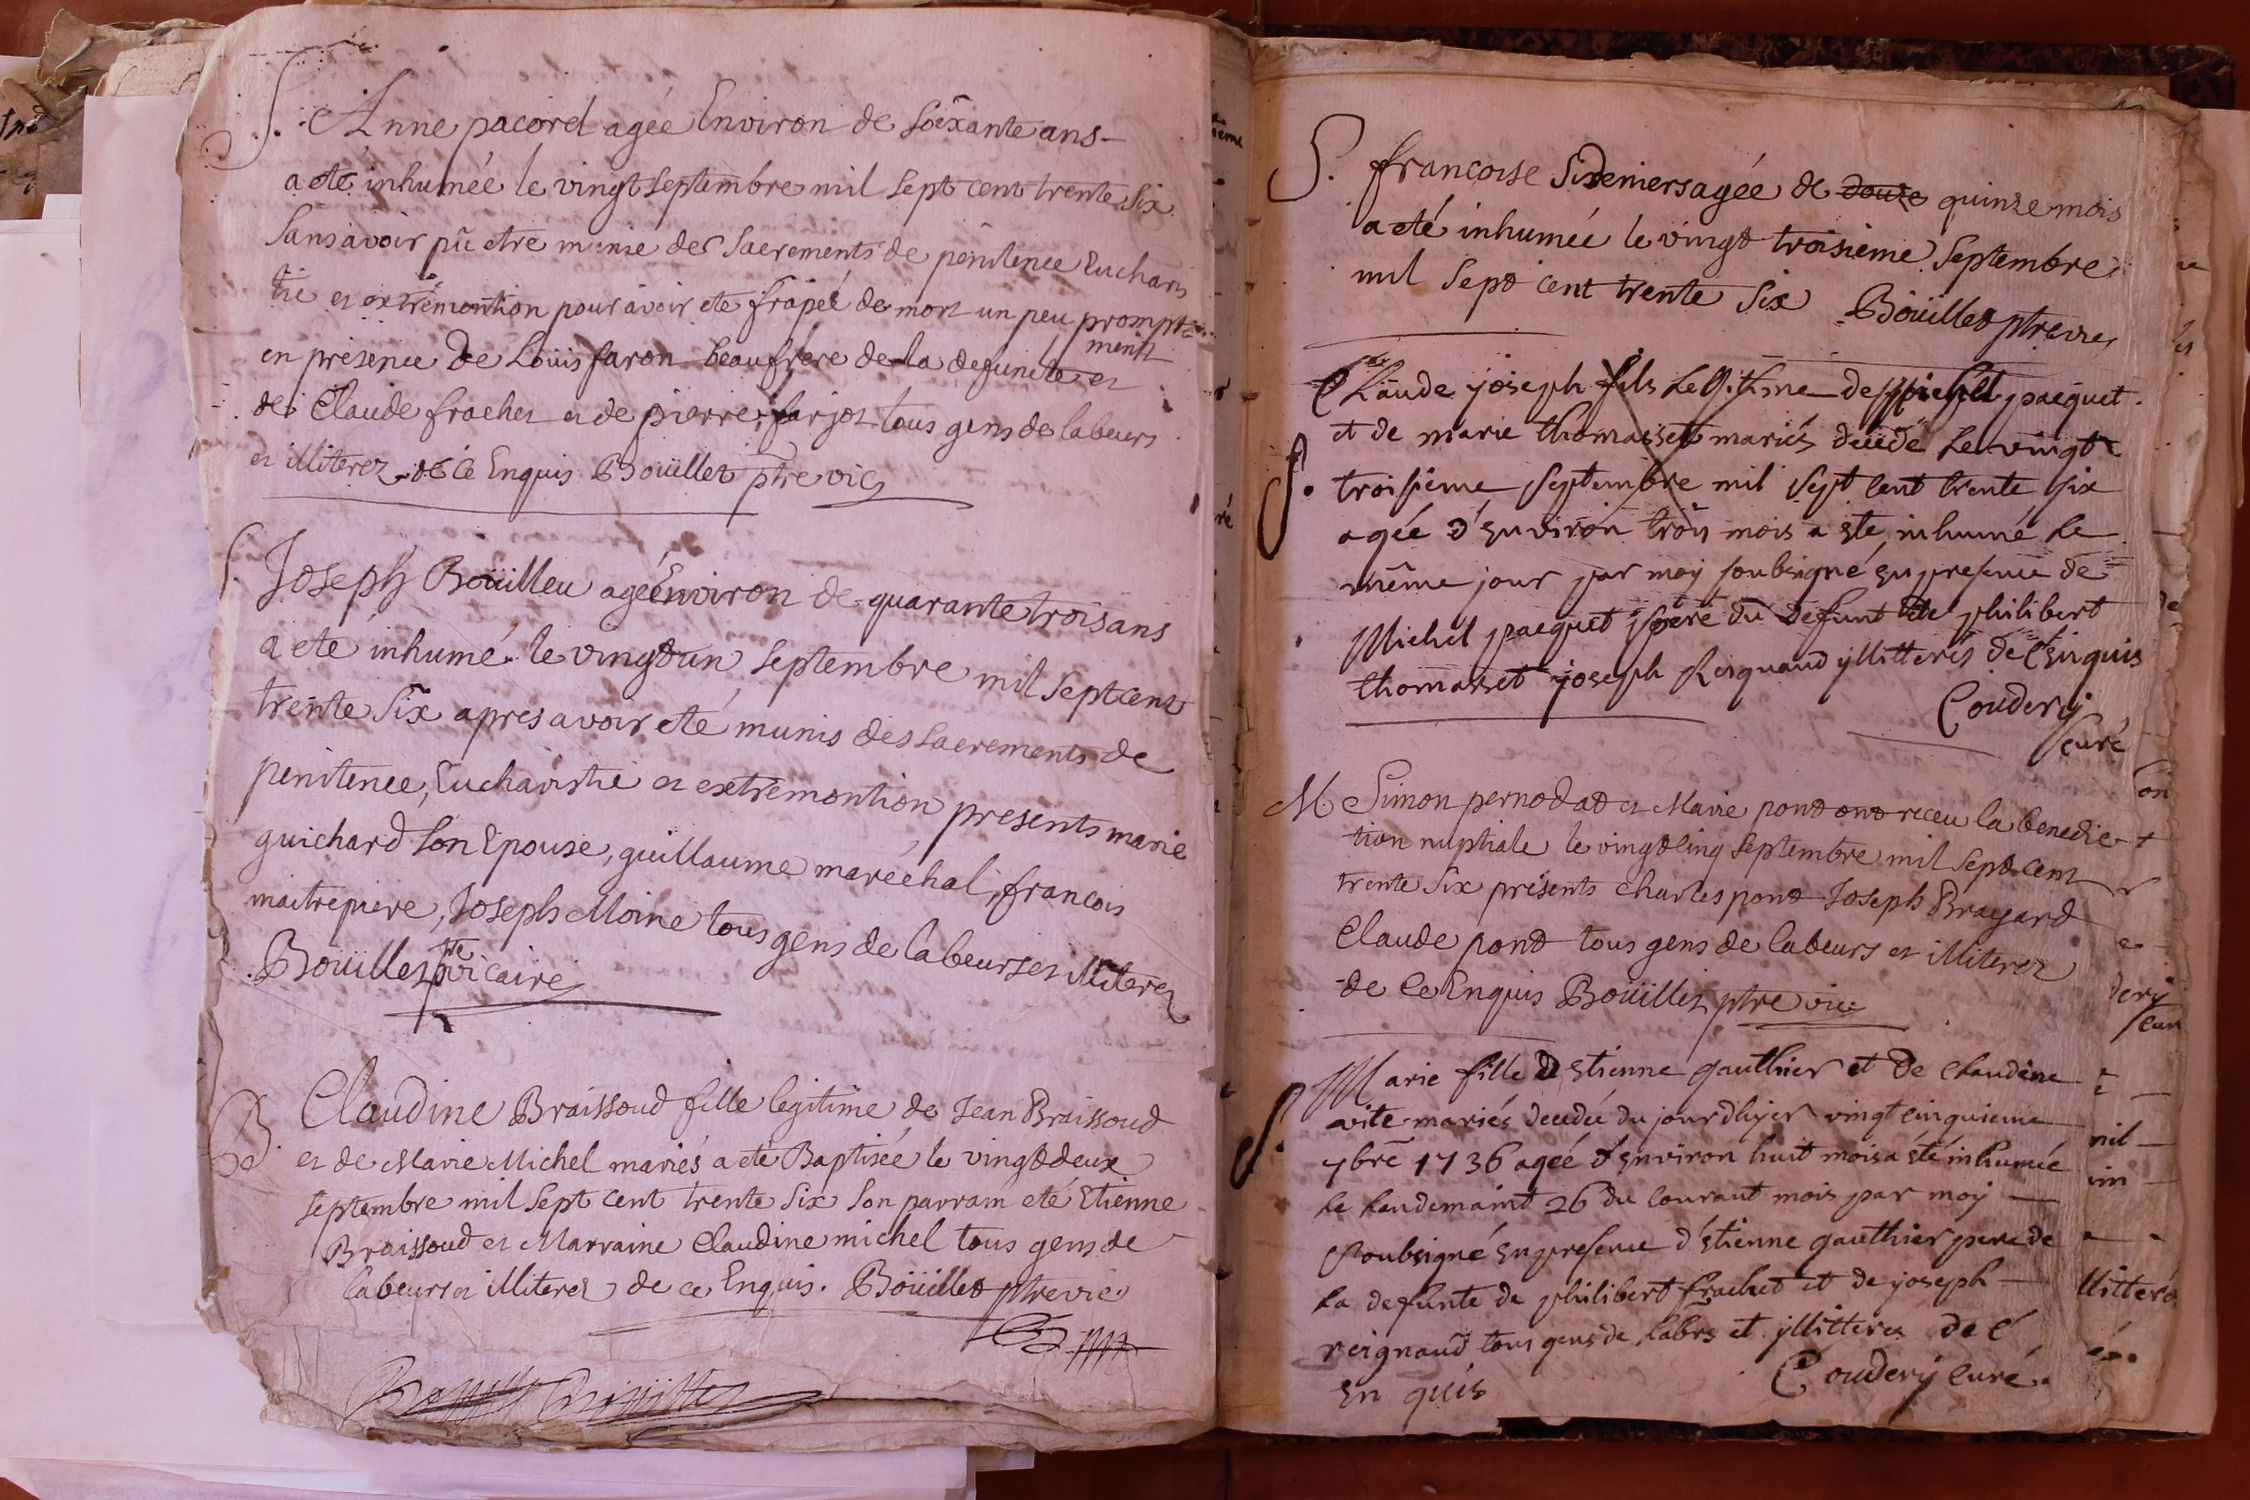 S. Anne pacord agée Environ de soixante ans
a eté inhumée le vingt septembre mil sept cent trente six
sans avoir pû etre munie des sacrements de penitence Eucharis
tie et extremontion pour avoir eté frapée de mort un peu prompte
ment
en presence de Loüis faron beaufrere de la defuncte et
de Claude frachet et de pierre farjot tous gens de labeurs
et illiterez de ce Enquis Boüillet ptre vic
S. Joseph Boüilleu agé Environ de quarante trois ans
a eté inhumé le vingt un septembre mil sept cent
trente six apres avoir eté munis des sacrements de
penitence, Eucharistie et extremontion presents marie
guichard son Epouse, guillaume maréchal, francois
maitrepiere, Joseph Moine tous gens de labeurs et illiterez
Boüillet ptre vicaire
B. Claudine Braissoud fille legitime de Jean Braissoud
et de Marie Michel mariés a eté Baptisée le vingt deux
septembre mil sept cent trente six son parram eté Etienne
Braissoud et Marraine Claudine michel tous gens de
labeurs et illiterez de ce Enquis. Boüillet ptre vic
S. francoise Sixdeniers agée de douze quinze mois
a eté inhumée le vingt troisieme septembre
mil sept cent trente six Boüillet ptre vic
Claude joseph fils Legitime de Michel pacquet
et de marie thomasset mariés decedé Le vingt
S. troisieme septembre mil sept cent trente six
agée d'Environ trois mois a Ete inhumé Le
même jour par moy soubsigné En presence de
Michel pacquet pere du defunt de philibert
thomasset joseph Reignaud yllitterés de C Enquis
Coudery
curé
M Simon pernodat et Marie pont ont receu la benedic
tion nuptiale le vingt cinq septembre mil sept cent
trente six présents Charles pont Joseph Brayard
Claude pont tous gens de labeurs et illiterez
de Ce Enquis Boüillet ptre vic
S. Marie fille d Etienne gauthier et de Claudine
vite mariés decedée du jourdhyer vingt cinquieme
7bre 1736 agée d'Environ huit mois a été inhumée
Le Landemaint 26 du courant mois par moy
soubsigné En presence d'Etienne gauthier pere de
La defunte de philibert frachet et de joseph
reignaud tous gens de Labrs et yllitteres de C
En quis Coudery Curé